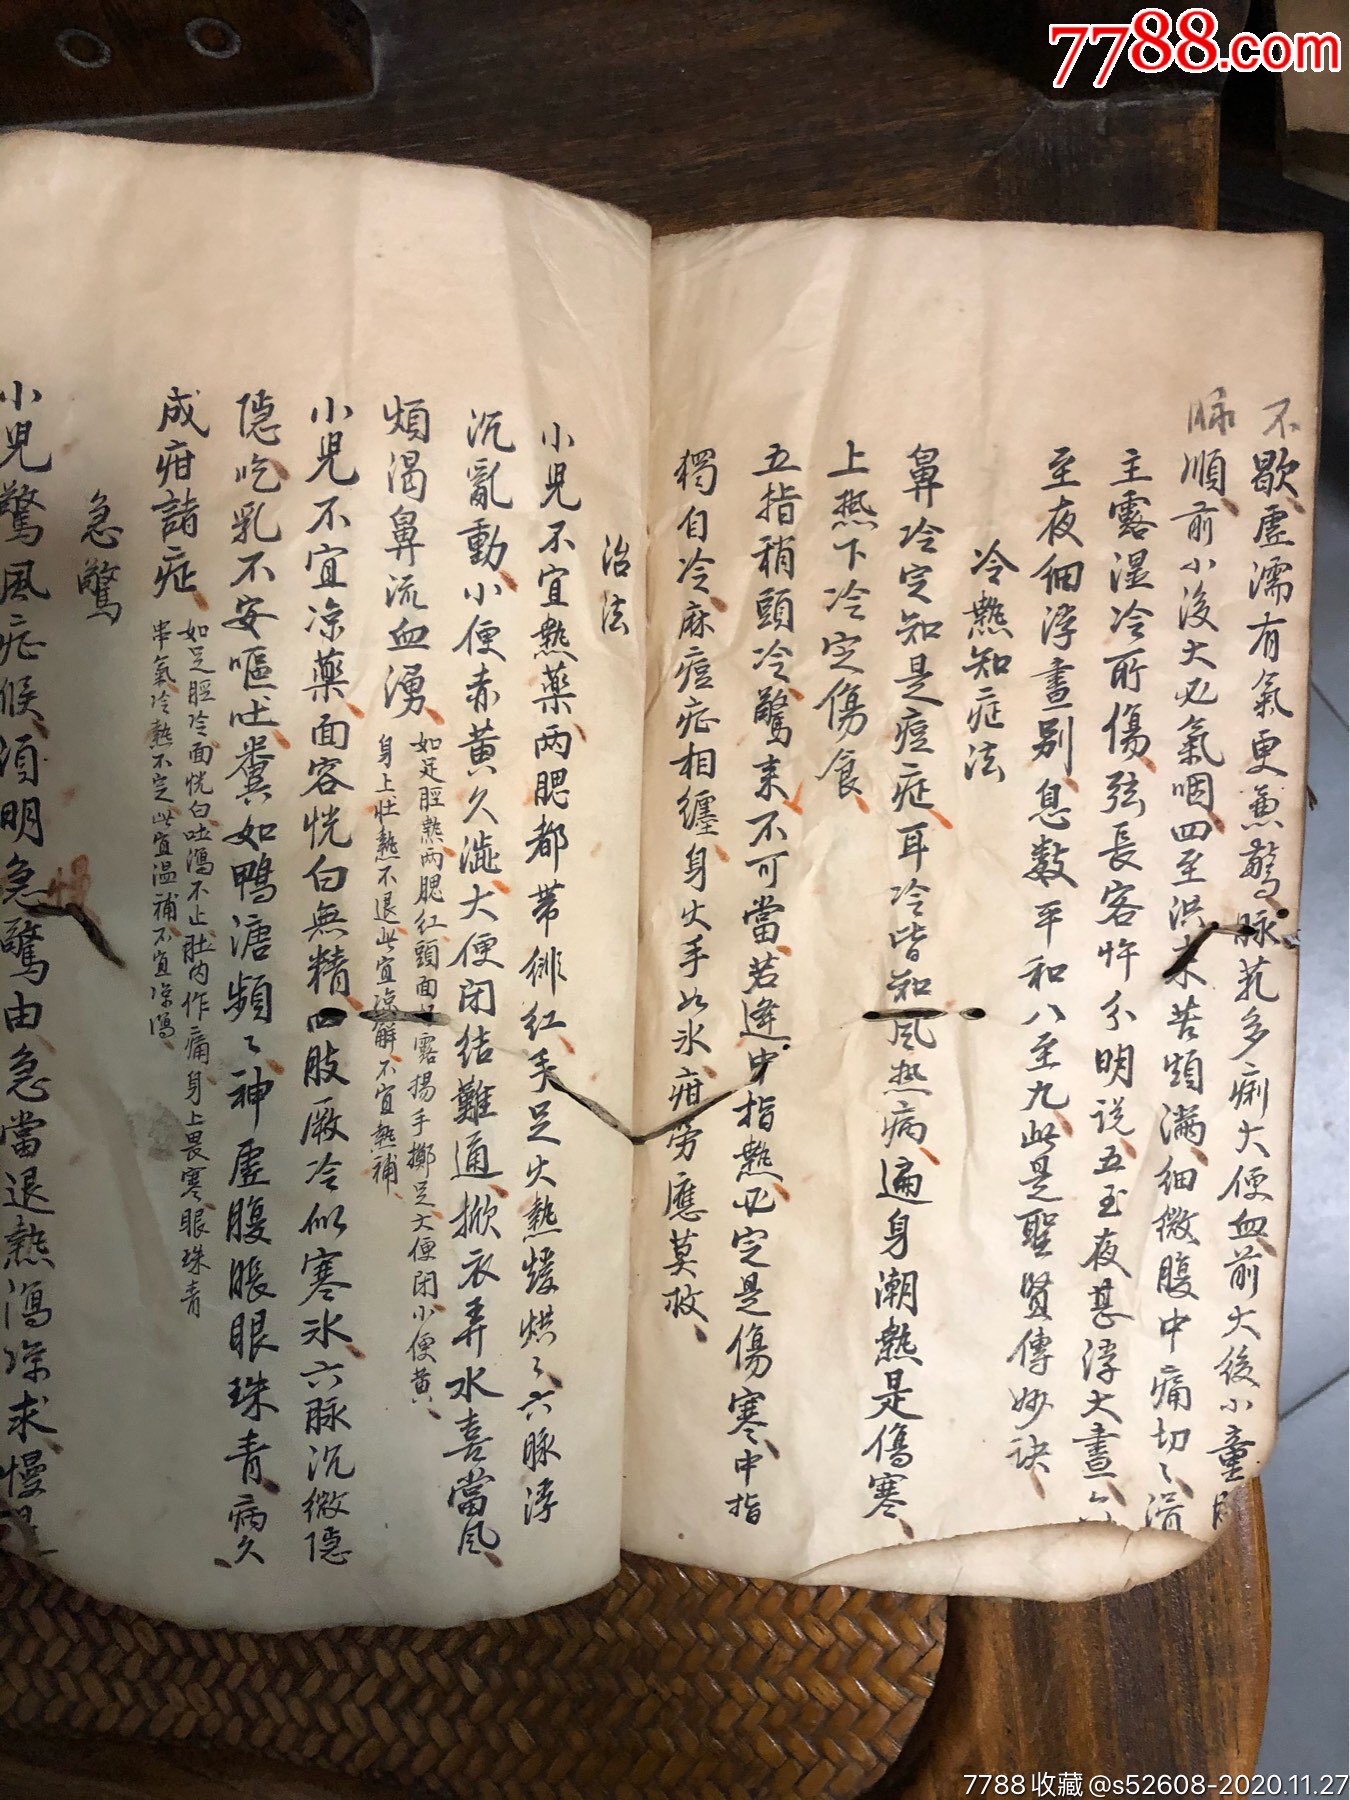 7788.com
不歇虛濡有氣更兼驚脉芤多痢大便血前大後小童
脉順前小後大必氣咽四至洪來苦煩滿細微腹中痛切〻滑
主露湿冷所傷弦長客忤分明説五至夜甚浮大晝
至夜細浮晝别息數平和八至九此是聖賢傳妙诀
冷熱知症法
鼻冷定知是痘症耳冷皆知风热病遍身潮熱是傷寒
上热下冷定傷食
五指稍頭冷驚来不可當若逢中指熱必定是傷寒中指
獨自冷麻痘症相纏身火手如氷疳労應莫救
治法
小児不宜熱藥两腮都带緋红手足火熱煖烘〻六脉浮
沉亂動小便赤黄久澁大便閉結難通掀衣弄水喜當风
煩渴鼻流血湧
如足脛熱两腮红頭面好露揚手擲足大便閉小便黄
身上壮熱不退此宜凉解不宜熱補
小児不宜凉藥面容恍白無精四肢厥冷似寒氷六脉沉微隱
隱吃乳不安嘔吐糞如鴨溏頻〻神虛腹脹眼珠青病久
成疳諸症
如足脛冷面恍白吐瀉不止肚内作痛身上畏寒眼珠青
串氣冷熱不定此宜温補不宜凉瀉
急驚
小児驚風症候須明急驚由急當退熱瀉凉求慢
7788收藏@s52608-2020.11.27